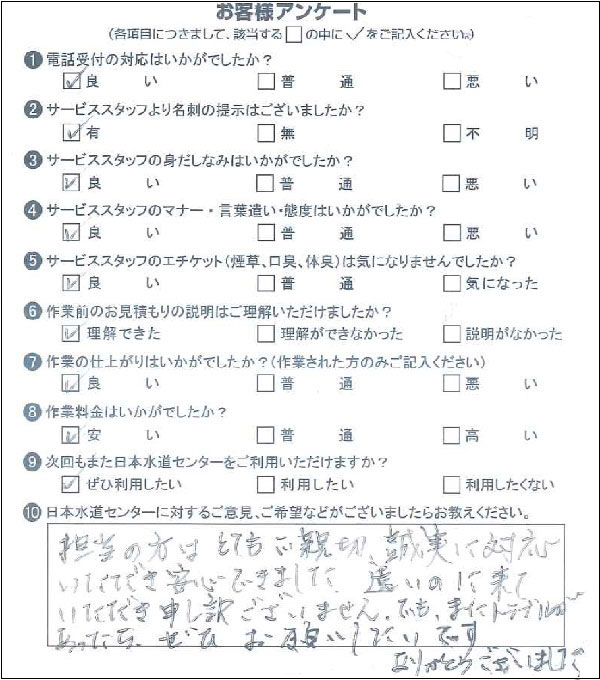 お客様アンケート
(各項目につきまして、該当する□の中に✓をご記入ください。)
❶ 電話受付の対応はいかがでしたか?
☑ 良い □ 普通 □ 悪い
❷ サービススタッフより名刺の提示はございましたか?
☑ 有 □ 無 □ 不明
❸ サービススタッフの身だしなみはいかがでしたか?
☑ 良い □ 普通 □ 悪い
❹ サービススタッフのマナー・言葉遣い・態度はいかがでしたか?
☑ 良い □ 普通 □ 悪い
❺ サービススタッフのエチケット(煙草、口臭、体臭)は気になりませんでしたか?
☑ 良い □ 普通 □ 気になった
❻ 作業前のお見積もりの説明はご理解いただけましたか?
☑ 理解できた □ 理解ができなかった □ 説明がなかった
❼ 作業の仕上がりはいかがでしたか?(作業された方のみご記入ください)
☑ 良い □ 普通 □ 悪い
❽ 作業料金はいかがでしたか?
☑ 安い □ 普通 □ 高い
❾ 次回もまた日本水道センターをご利用いただけますか?
☑ ぜひ利用したい □ 利用したい □ 利用したくない
❿ 日本水道センターに対するご意見、ご希望などがございましたらお教えください。
担当の方はとてもご親切、誠実に対応
いただき安心できました 遠いのに来て
いただき申し訳ございません。でも、またトラブルが
あったら、ぜひお願いしたいです
ありがとうございました